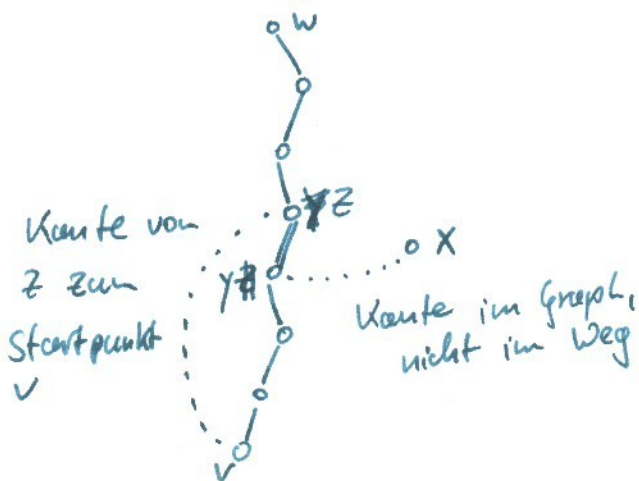 W
Z
Kante von
Z zum
Startpunkt
v
y
X
Kante im Graph,
nicht im Weg
v